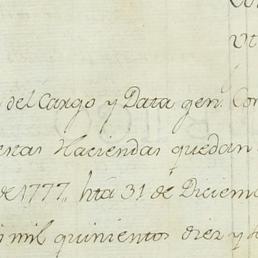 del Cargo y Data gen.l Con
Haciendas quedan
de 1777,, hta 31 de Diciem
mil quinientos diez y